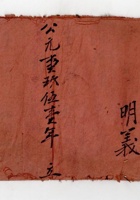 明義
公元壹玖伍壹年 立